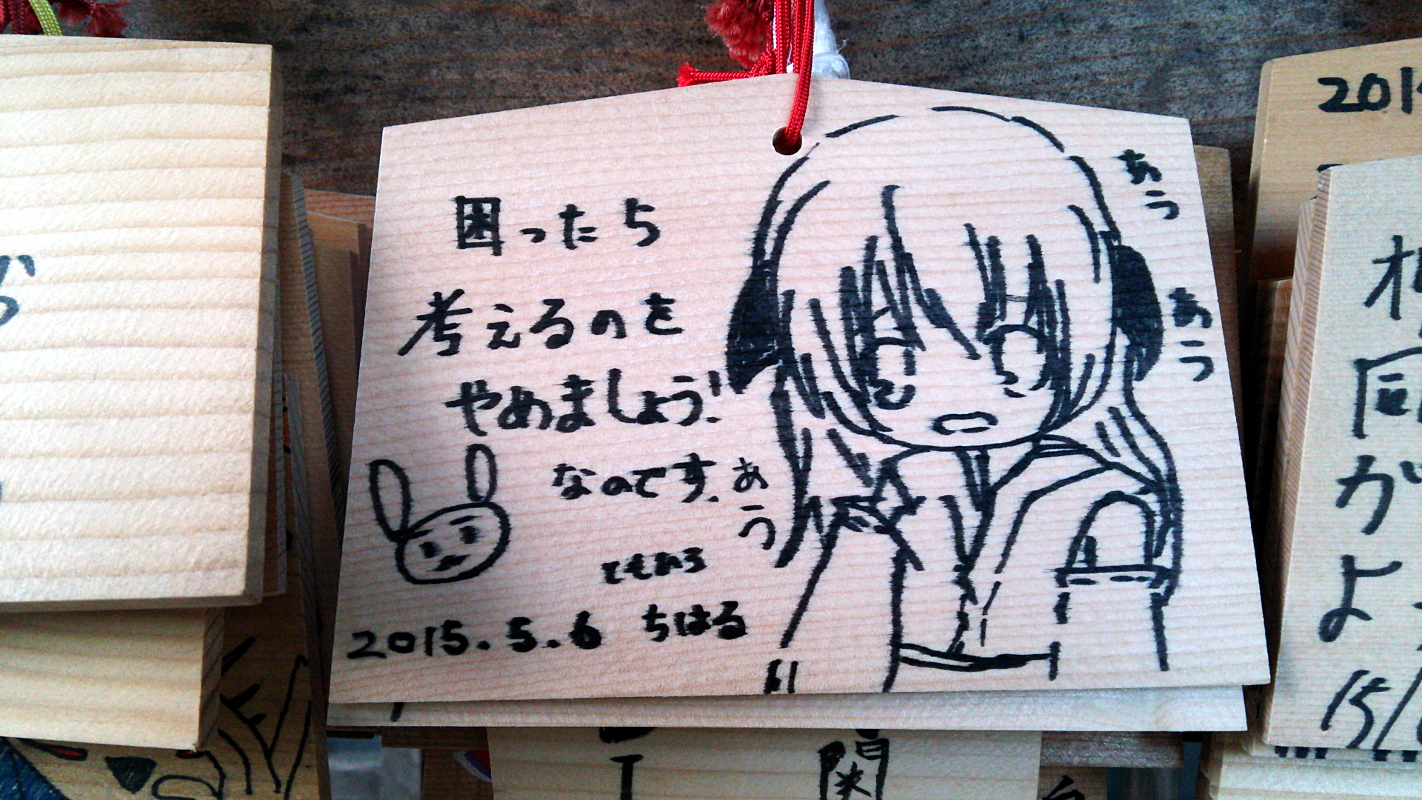 困ったら
考えるのを
やめましょう!
なのです。
あう
ともひろ
2015.5.6 ちはる
あう
あう
201
か
よ
15/
関